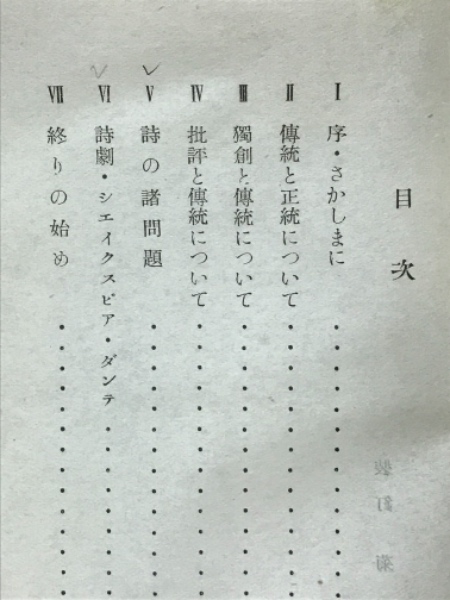 目次
I 序・さかしまに
II 傳統と正統について
III 獨創と傳統について
IV 批評と傳統について
V 詩の諸問題
VI 詩劇・シエイクスピア・ダンテ
VII 終りの始め
装釘 菊